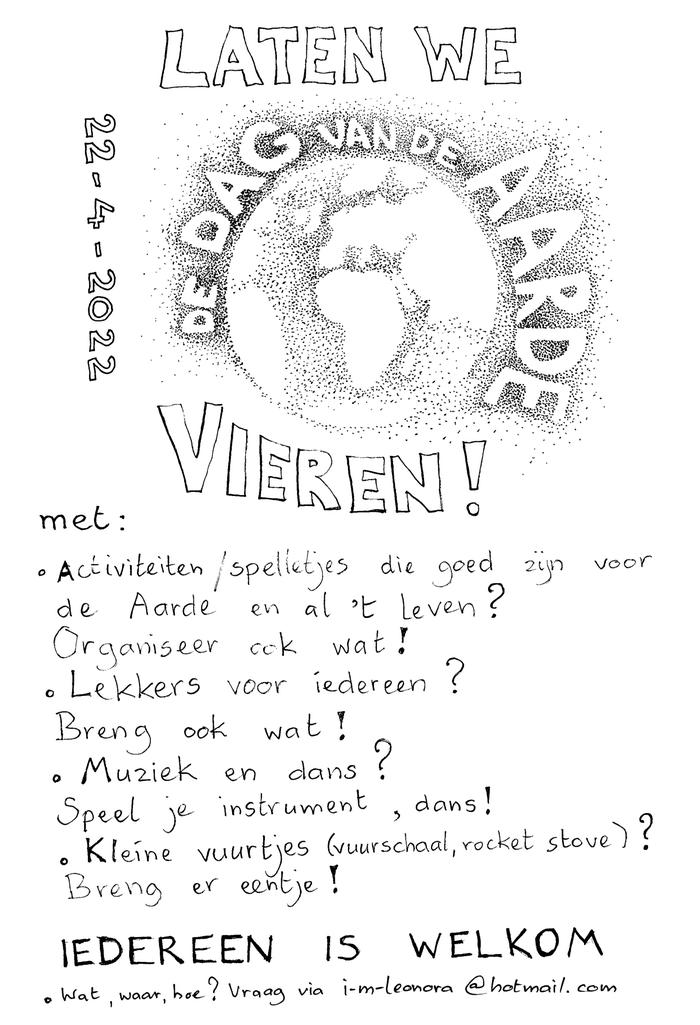 LATEN WE
22-4-2022
DE DAG VAN DE AARDE
VIEREN!
met:
• Activiteiten/spelletjes die goed zijn voor
de Aarde en al 't leven?
Organiseer ook wat!
• Lekkers voor iedereen?
Breng ook wat!
• Muziek en dans?
Speel je instrument, dans!
• Kleine vuurtjes (vuurschaal, rocket stove)?
Breng er eentje!
IEDEREEN IS WELKOM
• Wat, waar, hoe? Vraag via i-m-leonora@hotmail.com